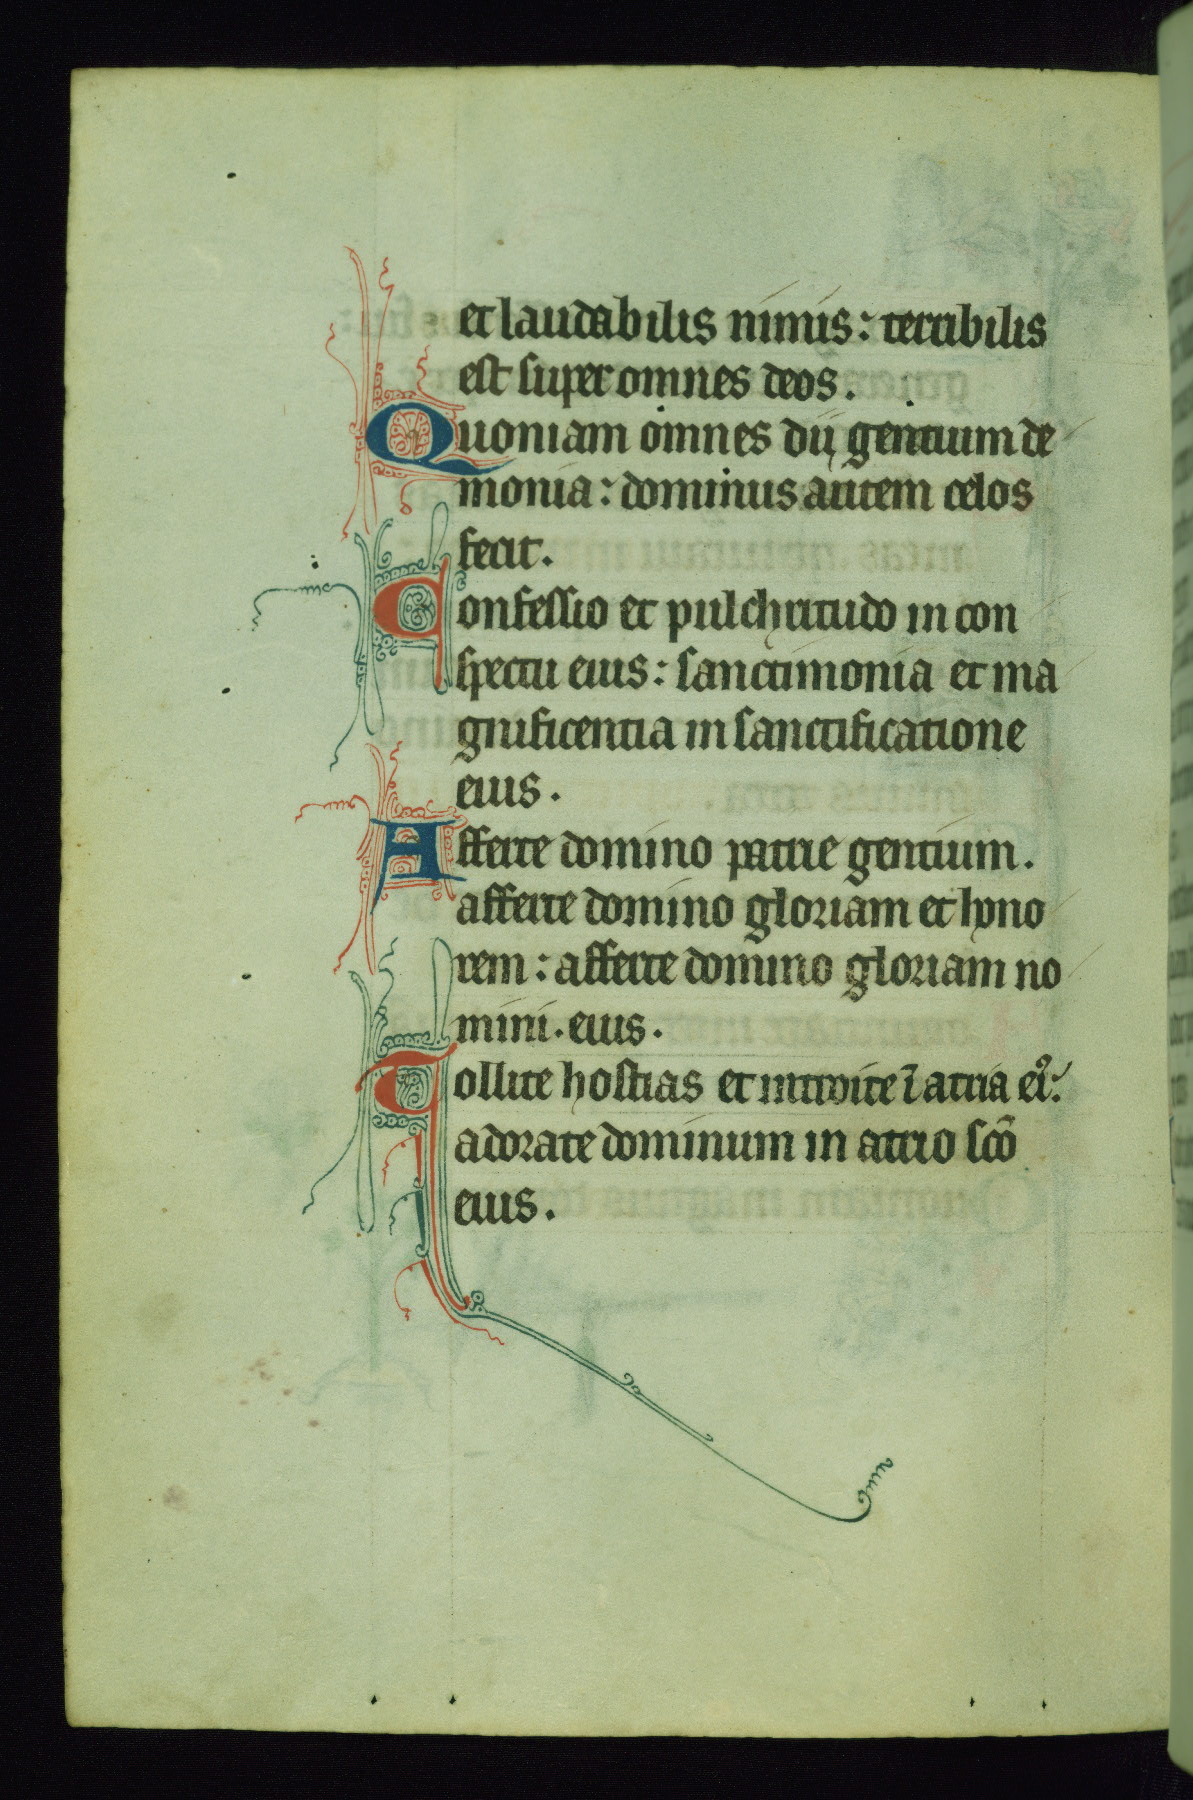 et laudabilis nimis: terribilis
est super omnes deos.
Quoniam omnes dii gentium de
monia: dominus autem celos
fecit.
Confessio et pulchritudo in con
spectu eius: sanctimonia et ma
gnificentia in sanctificatione
eius.
Afferte domino patrie gentium.
afferte domino gloriam et hono
rem: afferte domino gloriam no
mini. eius.
Tollite hostias et introite ī atria eiꝰ:
adorate dominum in atrio scō
eius.